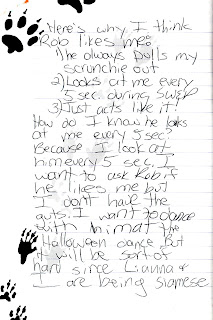 Here's why I think
Rob likes me:
1) he always pulls my
scrunchie out
2) Looks at me every
5 sec. during SWEP
3) Just acts like it!
How do I know he looks
at me every 5 sec?
Because I look at
him every 5 sec. I
want to ask Rob if
he likes me but
I don't have the
guts. I want to dance
with him at the
Halloween dance but
it will be sort of
hard since Lianna &
I are being siamese